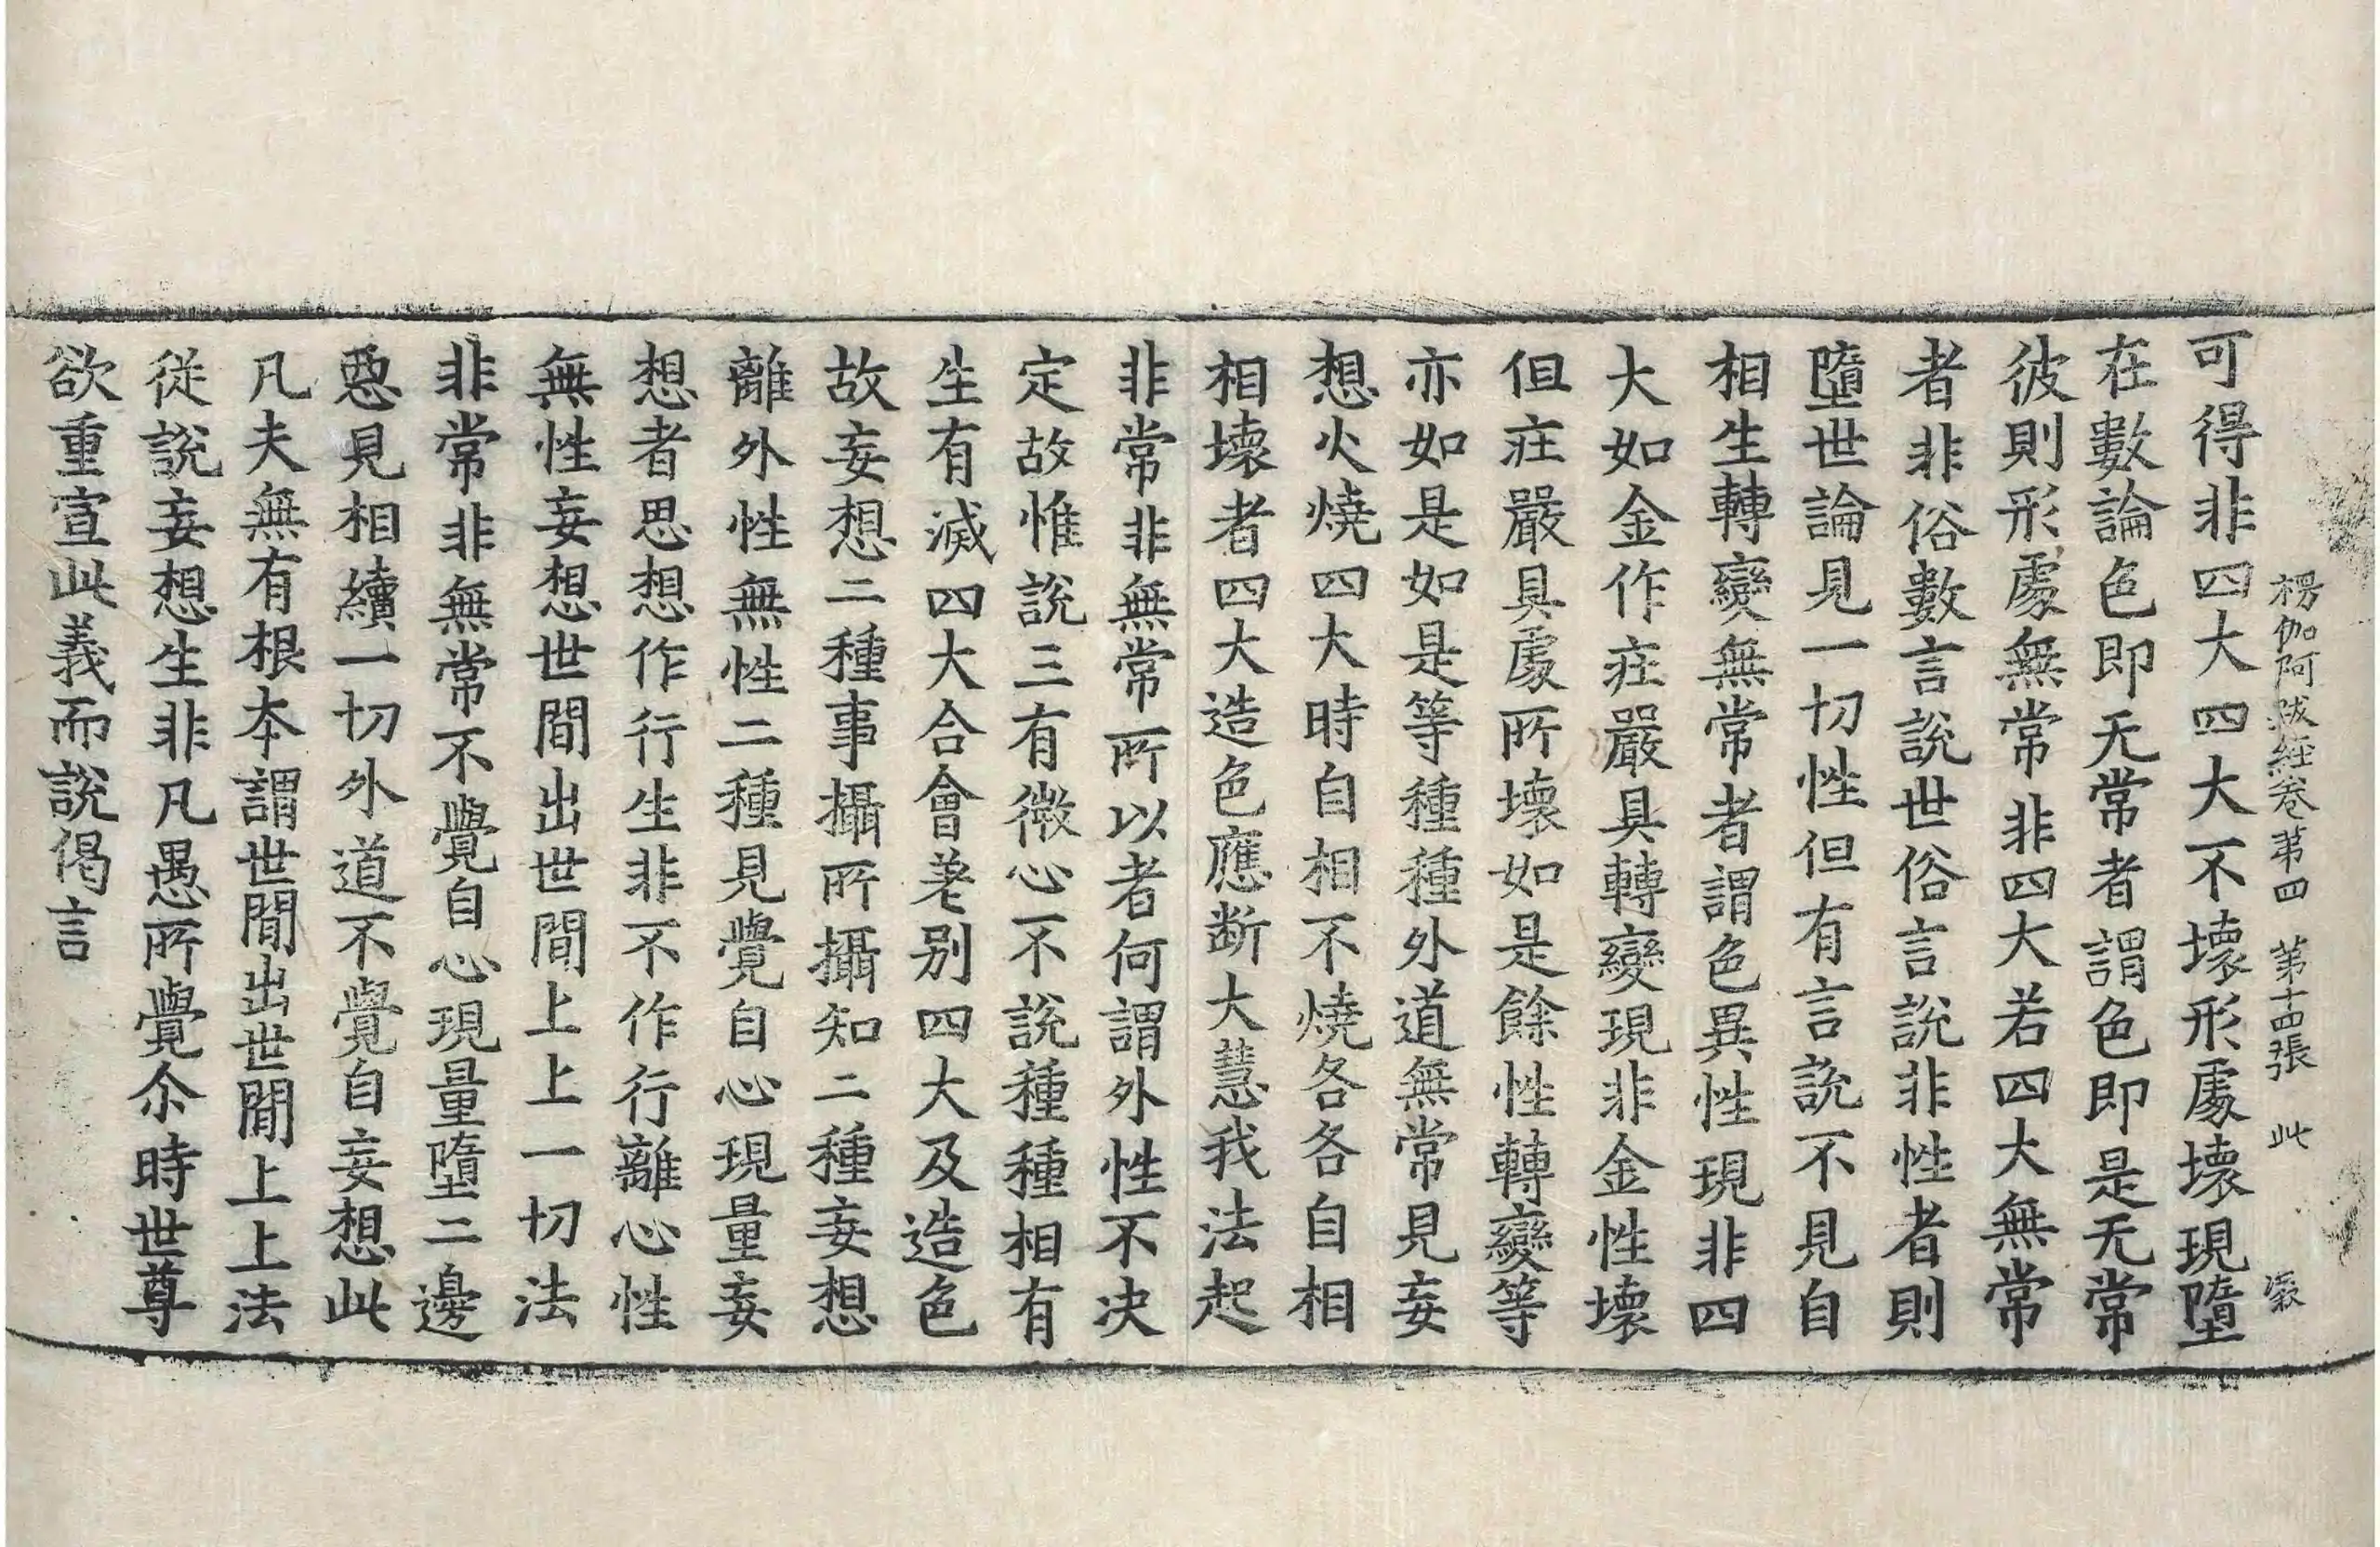 楞伽阿跋经卷苐四 苐十四張 此
可得非四大四大不壞形處壞現墮
在數論色即无常者謂色即是无常
彼則形處無常非四大若四大無常
者非俗數言說世俗言說非性者則
墮世論見一切性但有言說不見自
相生轉變無常者謂色異性現非四
大如金作荘嚴具轉變現非金性壞
但荘嚴具處所壞如是餘性轉變等
亦如是如是等種種外道無常見妄
想火燒四大時自相不燒各各自相
相壞者四大造色應断大慧我法起
非常非無常所以者何謂外性不决
定故惟說三有微心不說種種相有
生有滅四大合會差别四大及造色
故妄想二種事攝所攝知二種妄想
離外性無性二種見覺自心現量妄
想者思想作行生非不作行離心性
無性妄想世間出世間上上一切法
非常非無常不覺自心現量墮二邊
惡見相續一切外道不覺自妄想此
凡夫無有根本謂世間出世間上上法
從說妄想生非凡愚所覺尒時世尊
欲重宣此義而說偈言